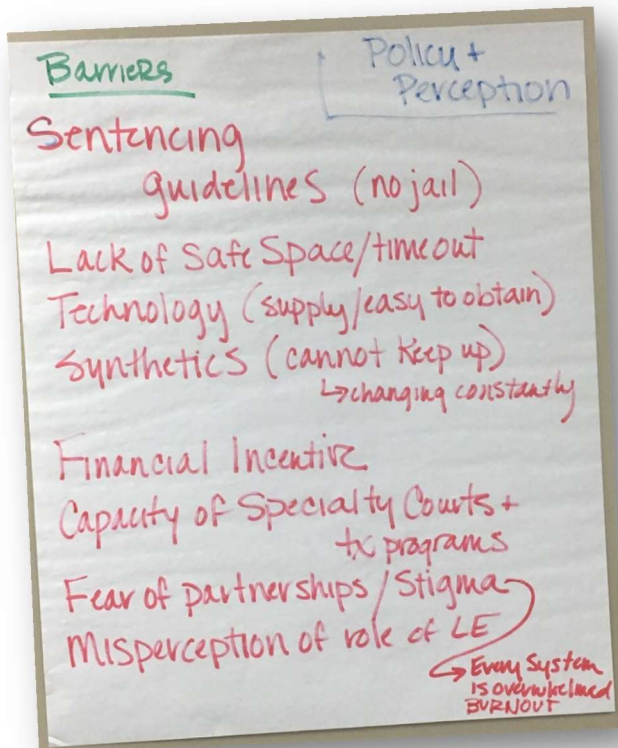 Barriers
Policy +
Perception
Sentencing
guidelines (no jail)
Lack of Safe Space/timeout
Technology (supply/easy to obtain)
Synthetics (cannot keep up)
↳changing constantly
Financial Incentive
Capacity of Specialty Courts +
tx programs
Fear of partnerships / Stigma
Misperception of role of LE
→ Every System
is overwhelmed
BURNOUT